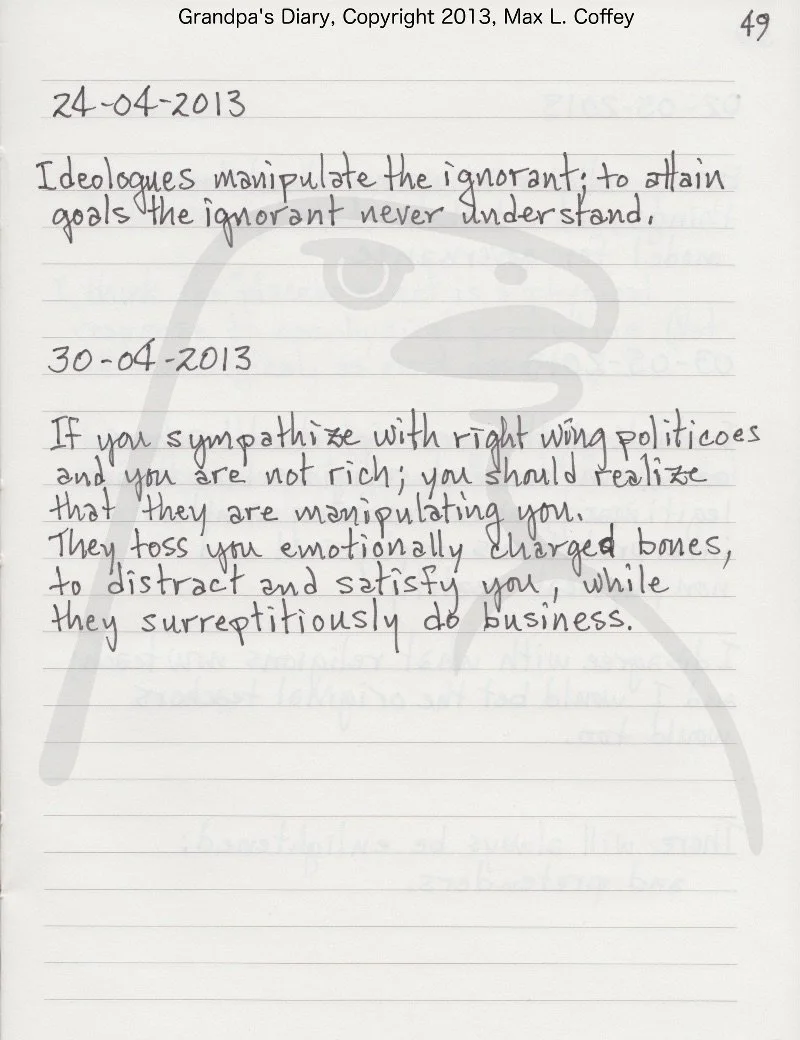 Grandpa's Diary, Copyright 2013, Max L. Coffey
49
24-04-2013
Ideologues manipulate the ignorant; to attain
goals the ignorant never understand.
30-04-2013
If you sympathize with right wing politicoes
and you are not rich; you should realize
that they are manipulating you.
They toss you emotionally charged bones,
to distract and satisfy you, while
they surreptitiously do business.